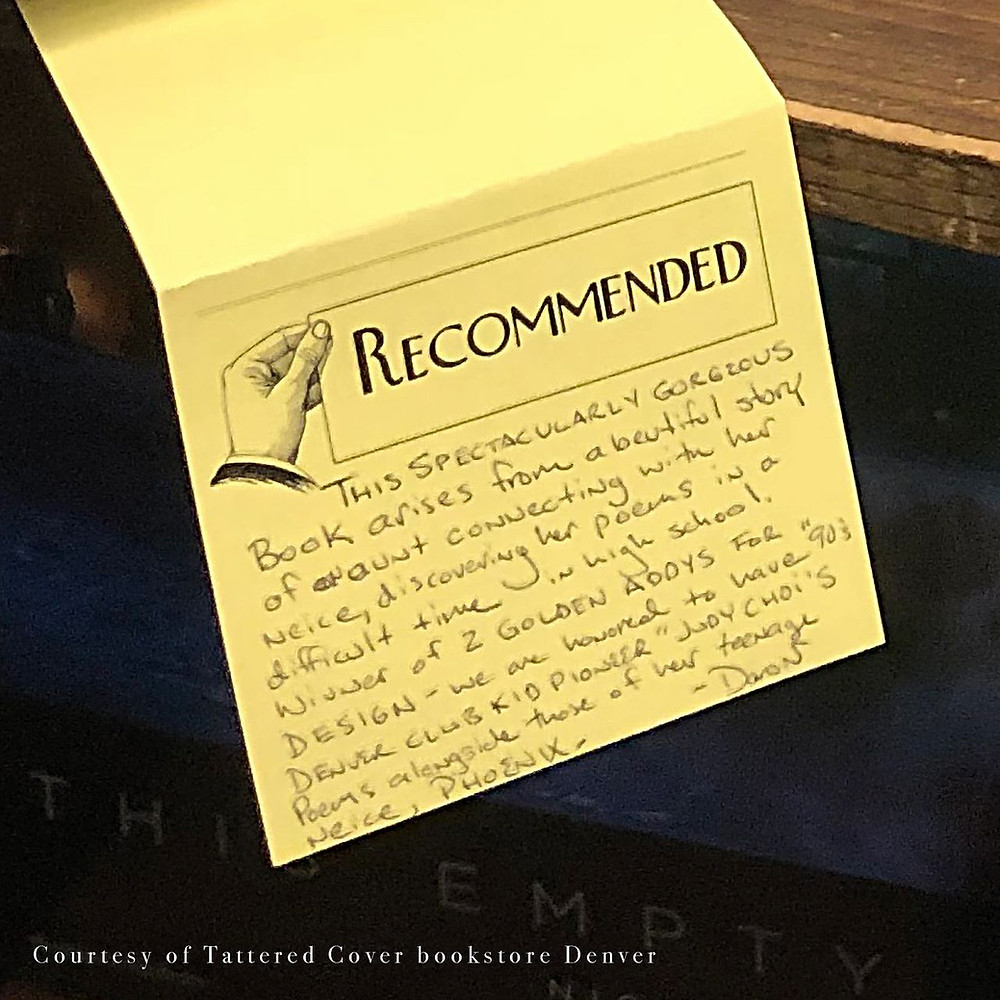 RECOMMENDED
THIS SPECTACULARLY GORGEOUS
BOOK arises from a beautiful story
of aunt connecting with her
Neice, discovering her poems in a
difficult time in high school.
Winner of 2 GOLDEN ADDYS FOR
DESIGN - we are honored to have "90's
DENVER CLUB KID PIONEER" JUDY CHOI'S
Poems alongside those of her teenage
Neice, PHOENIX.
THIS EMPTY
Courtesy of Tattered Cover bookstore Denver